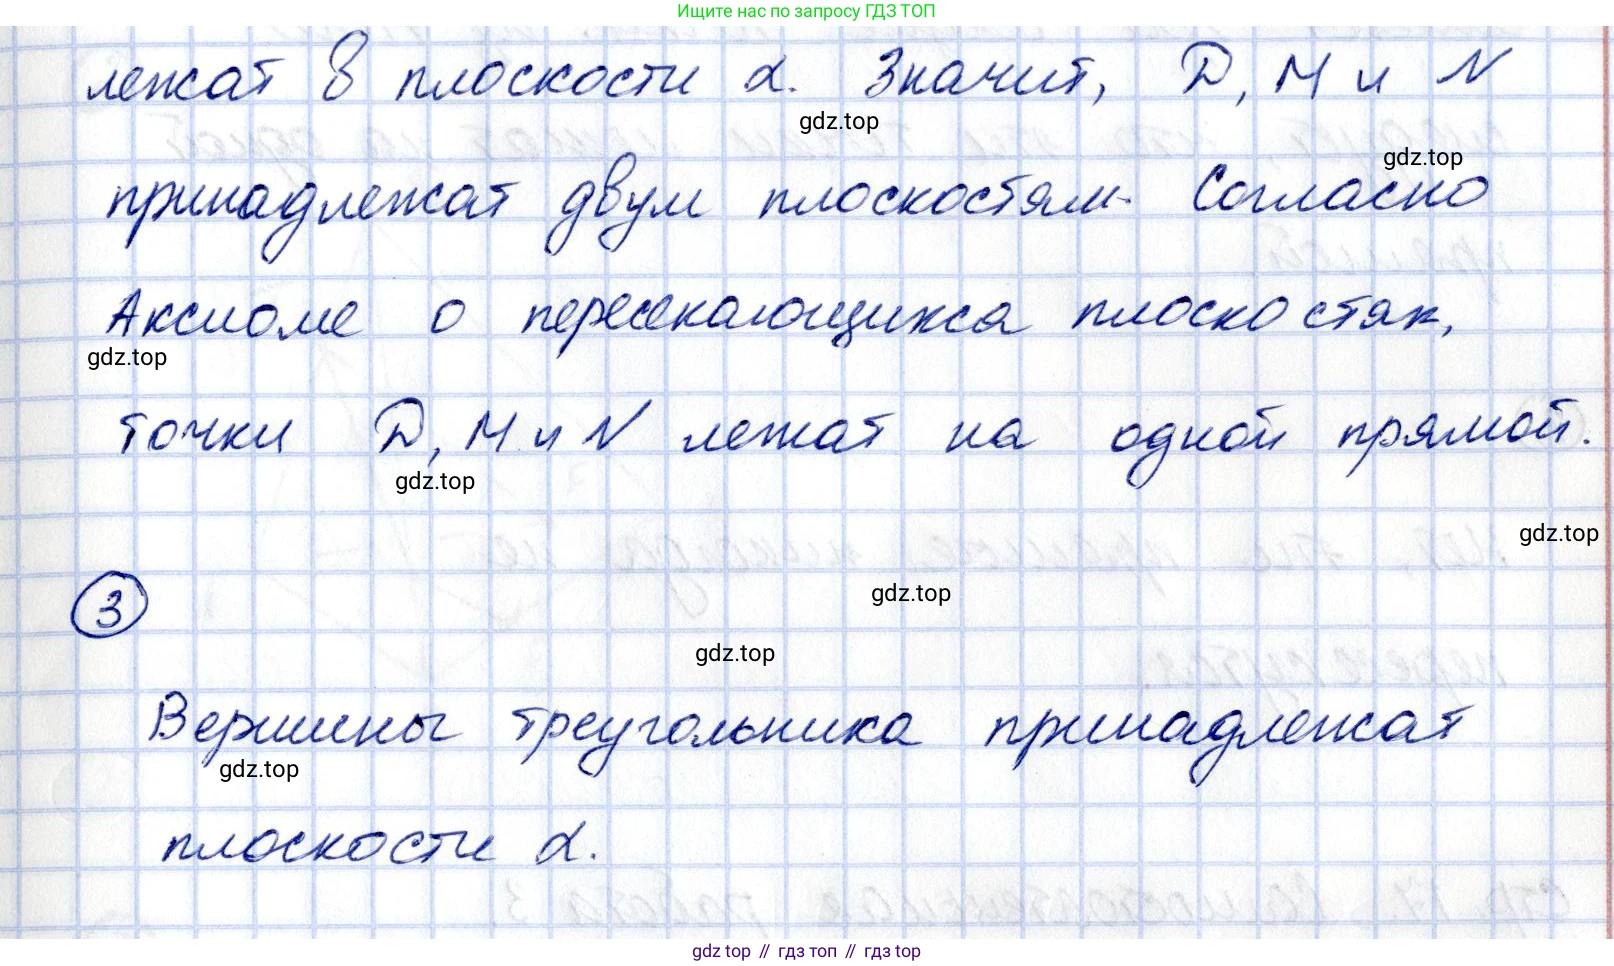 Ищите нас по запросу ГДЗ ТОП
лежат в плоскости α. Значит, D, M и N
gdz.top
gdz.top
принадлежат двум плоскостям. Согласно
Аксиоме о пересекающихся плоскостях,
gdz.top
точки D, M и N лежат на одной прямой.
gdz.top
gdz.top
3
gdz.top
gdz.top
Вершины треугольника принадлежат
gdz.top
плоскости α.
gdz top // гдз топ // гдз top